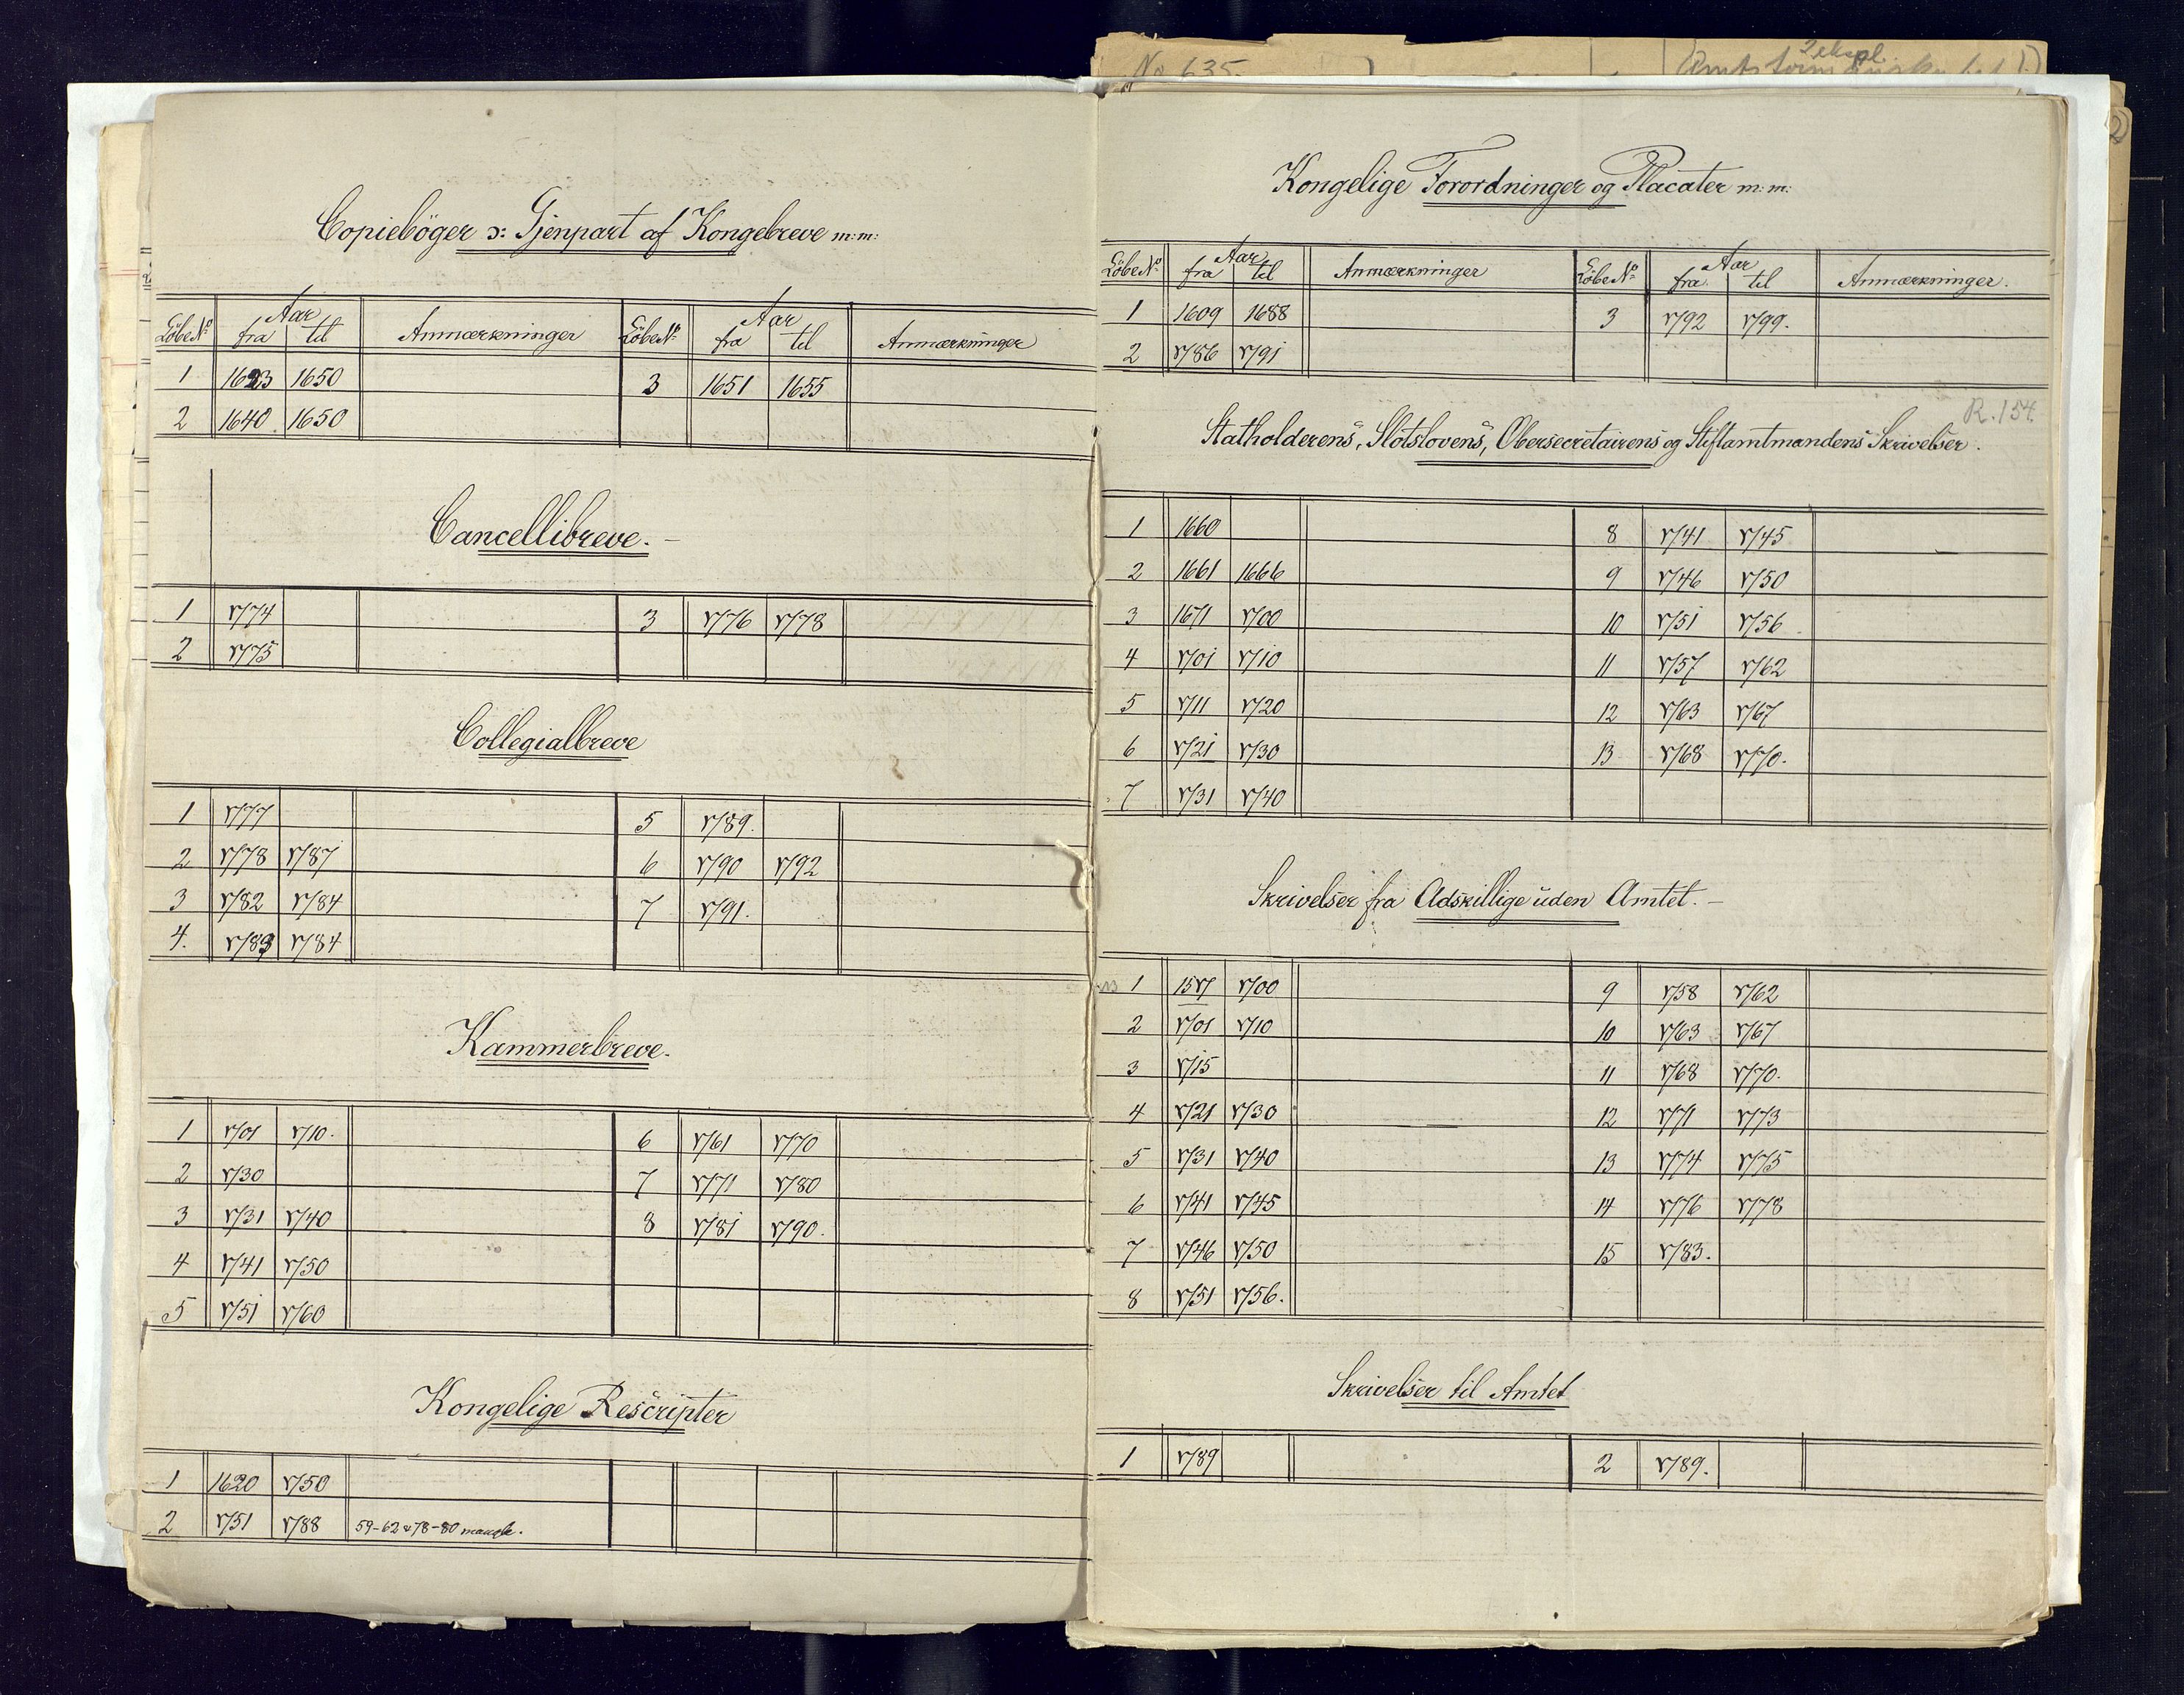 Copiebøger ɔ: Gjenpart af Kongebreve m:m:
Löbe No Aar fra til Anmærkninger Löbe No Aar fra til Anmærkninger
1 1623 1650 3 1651 1655
2 1640. 1650
Cancellibreve. –
1 1774 3 1776 1778
2 1775
Collegialbreve
1 1777 5 1789.
2 1778 1787 6 1790 1792
3 1782 1784 7 1791.
4. 1783 1784
Kammerbreve.
1 1701 1710. 6 1761 1770
2 1730 7 1771 1780
3 1731 1740 8 1781 1790.
4 1741 1750
5 1751 1760
Kongelige Rescripter
1 1620 1750
2 1751 1788 59-62 & 78-80 mangle.
No 635.
2 ekspl.
Kongelige Forordninger og Placater m:m:
Löbe No Aar fra til Anmærkninger Löbe No Aar fra til Anmærkninger.
1 1609 1688 3 1792 1799.
2 1786 1791
R. 154.
Statholderens, Slotslovens, Obersecretairens og Stiftamtmandens Skrivelser.
1 1660 8 1741 1745
2 1661 1666 9 1746 1750
3 1671 1700 10 1751 1756
4 1701 1710 11 1757 1762
5 1711 1720 12 1763 1767
6 1721 1730 13 1768 1770.
7 1731 1740
Skrivelser fra Adskillige uden Amtet. –
1 1577 1700 9 1758 1762
2 1701 1710 10 1763 1767
3 1715 11 1768 1770.
4 1721 1730 12 1771 1773
5 1731 1740 13 1774 1775
6 1741 1745 14 1776 1778
7 1746 1750 15 1783.
8 1751 1756.
Skrivelser til Amtet
1 1789 2 1789.